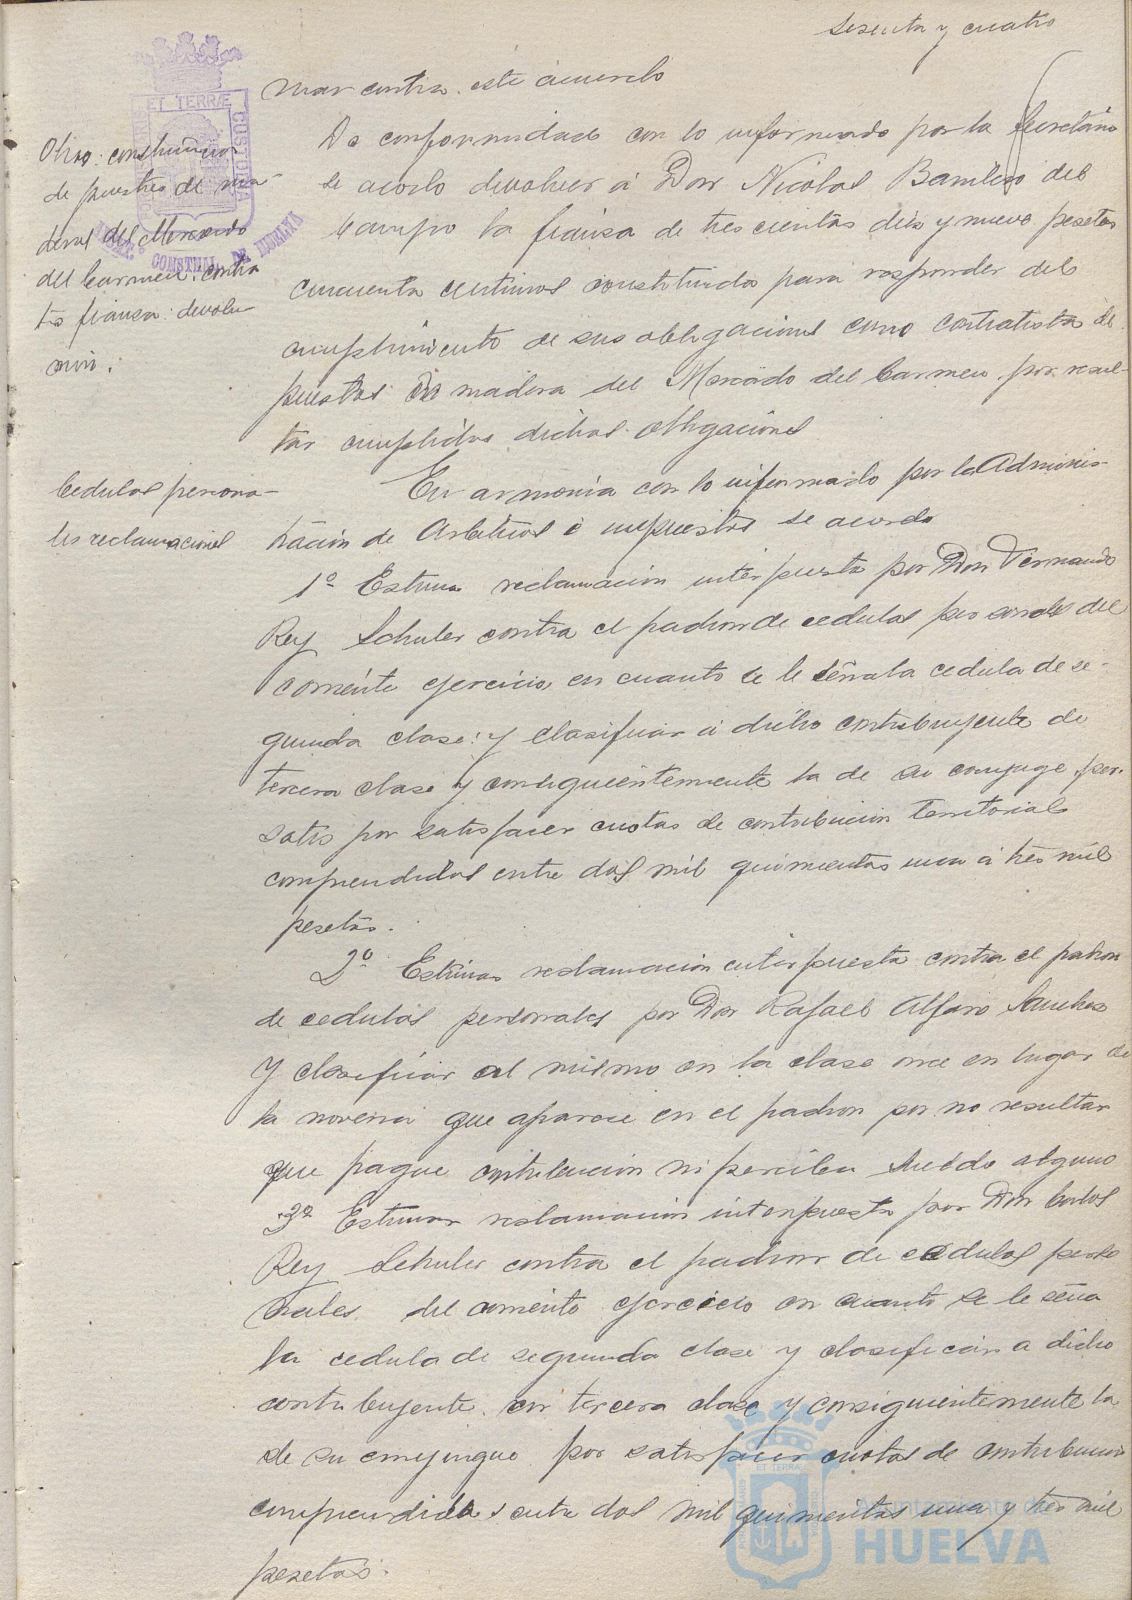 Sesenta y cuatro
mar contra este acuerdo
De conformidad con lo informado por la Secretaría
se acordó devolver á Don Nicolas del
Campo la fianza de trescientas diez y nueve pesetas
cincuenta centimos constituida para responder del
cumplimiento de sus obligaciones como contratista de
puestos de madera del Mercado del Carmen por resul-
tar cumplidas dichas obligaciones
Obras: construcción
de puestos de ma-
deras del Mercado
del Carmen: contra
ta fianza: devolu
ción.
Cedulas persona-
les reclamaciones
En armonia con lo informado por la Adminis-
tración de Arbitrios é impuestos se acordo
1º Estimar reclamación interpuesta por Don Fernando
Rey Schuler contra el padron de cedulas personales del
corriente ejercicio en cuanto se le señala cedula de se-
gunda clase: y clasificar á dicho contribuyente de
tercera clase y consiguientemente la de su conyuge por
satis por satisfacer cuotas de contribución territorial
comprendidas entre dos mil quinientas una á tres mil
pesetas.
2º Estimar reclamación interpuesta contra el padron
de cedulas personales por Don Rafael Alfaro Sanchez
y clasificar al mismo en la clase once en lugar de
la novena que aparece en el padron por no resultar
que pague contribución ni perciba sueldo alguno
3º Estimar reclamación interpuesta por Don Carlos
Rey Schuler contra el padron de cedulas perso
nales del corriente ejercicio en cuanto se le seña
la cedula de segunda clase y clasificar a dicho
contribuyente en tercera clase y consiguientemente la
de su conyugue por satisfacer cuotas de contribución
comprendidas entre dos mil quinientas una y tres mil
pesetas.
ET TERRÆ
CUSTODIA
CONSTNAL. DE HUELVA
ET TERRÆ
Ayuntamiento de
HUELVA